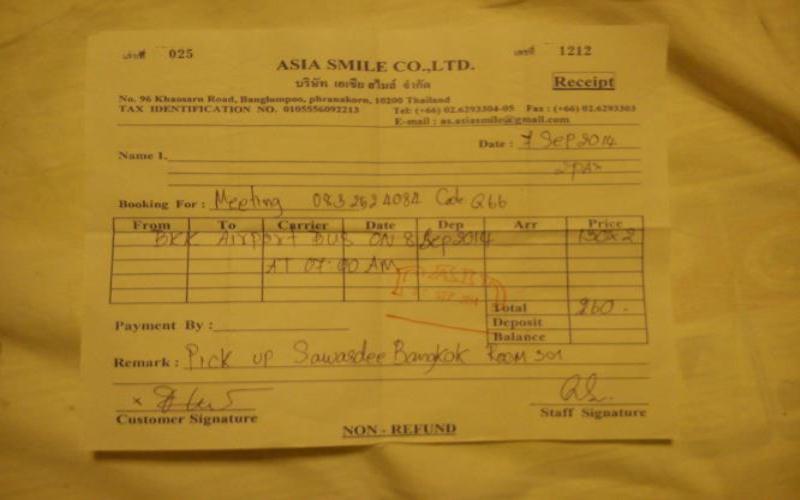 เล่มที่ 025 เลขที่ 1212
ASIA SMILE CO.,LTD.
บริษัท เอเซีย สไมล์ จำกัด
Receipt
No. 96 Khaosarn Road, Banglumpoo, phranakorn, 10200 Thailand
TAX IDENTIFICATION NO. 0105556092213 Tel: (+66) 02.6293304-05 Fax : (+66) 02.6293303
E-mail : as.asiasmile@gmail.com
Date : 7 Sep 2014
Name 1.
2pax
Booking For : Meeting 083 262 4084 Code Q66
From To Carrier Date Dep Arr Price
BKK Airport BUS ON 8 Sep 2014 130x2
AT 07.00 AM
PAID
Total 260.-
Deposit
Payment By :
Balance
Remark : Pick up Sawasdee Bangkok Room 301
Customer Signature Staff Signature
NON - REFUND